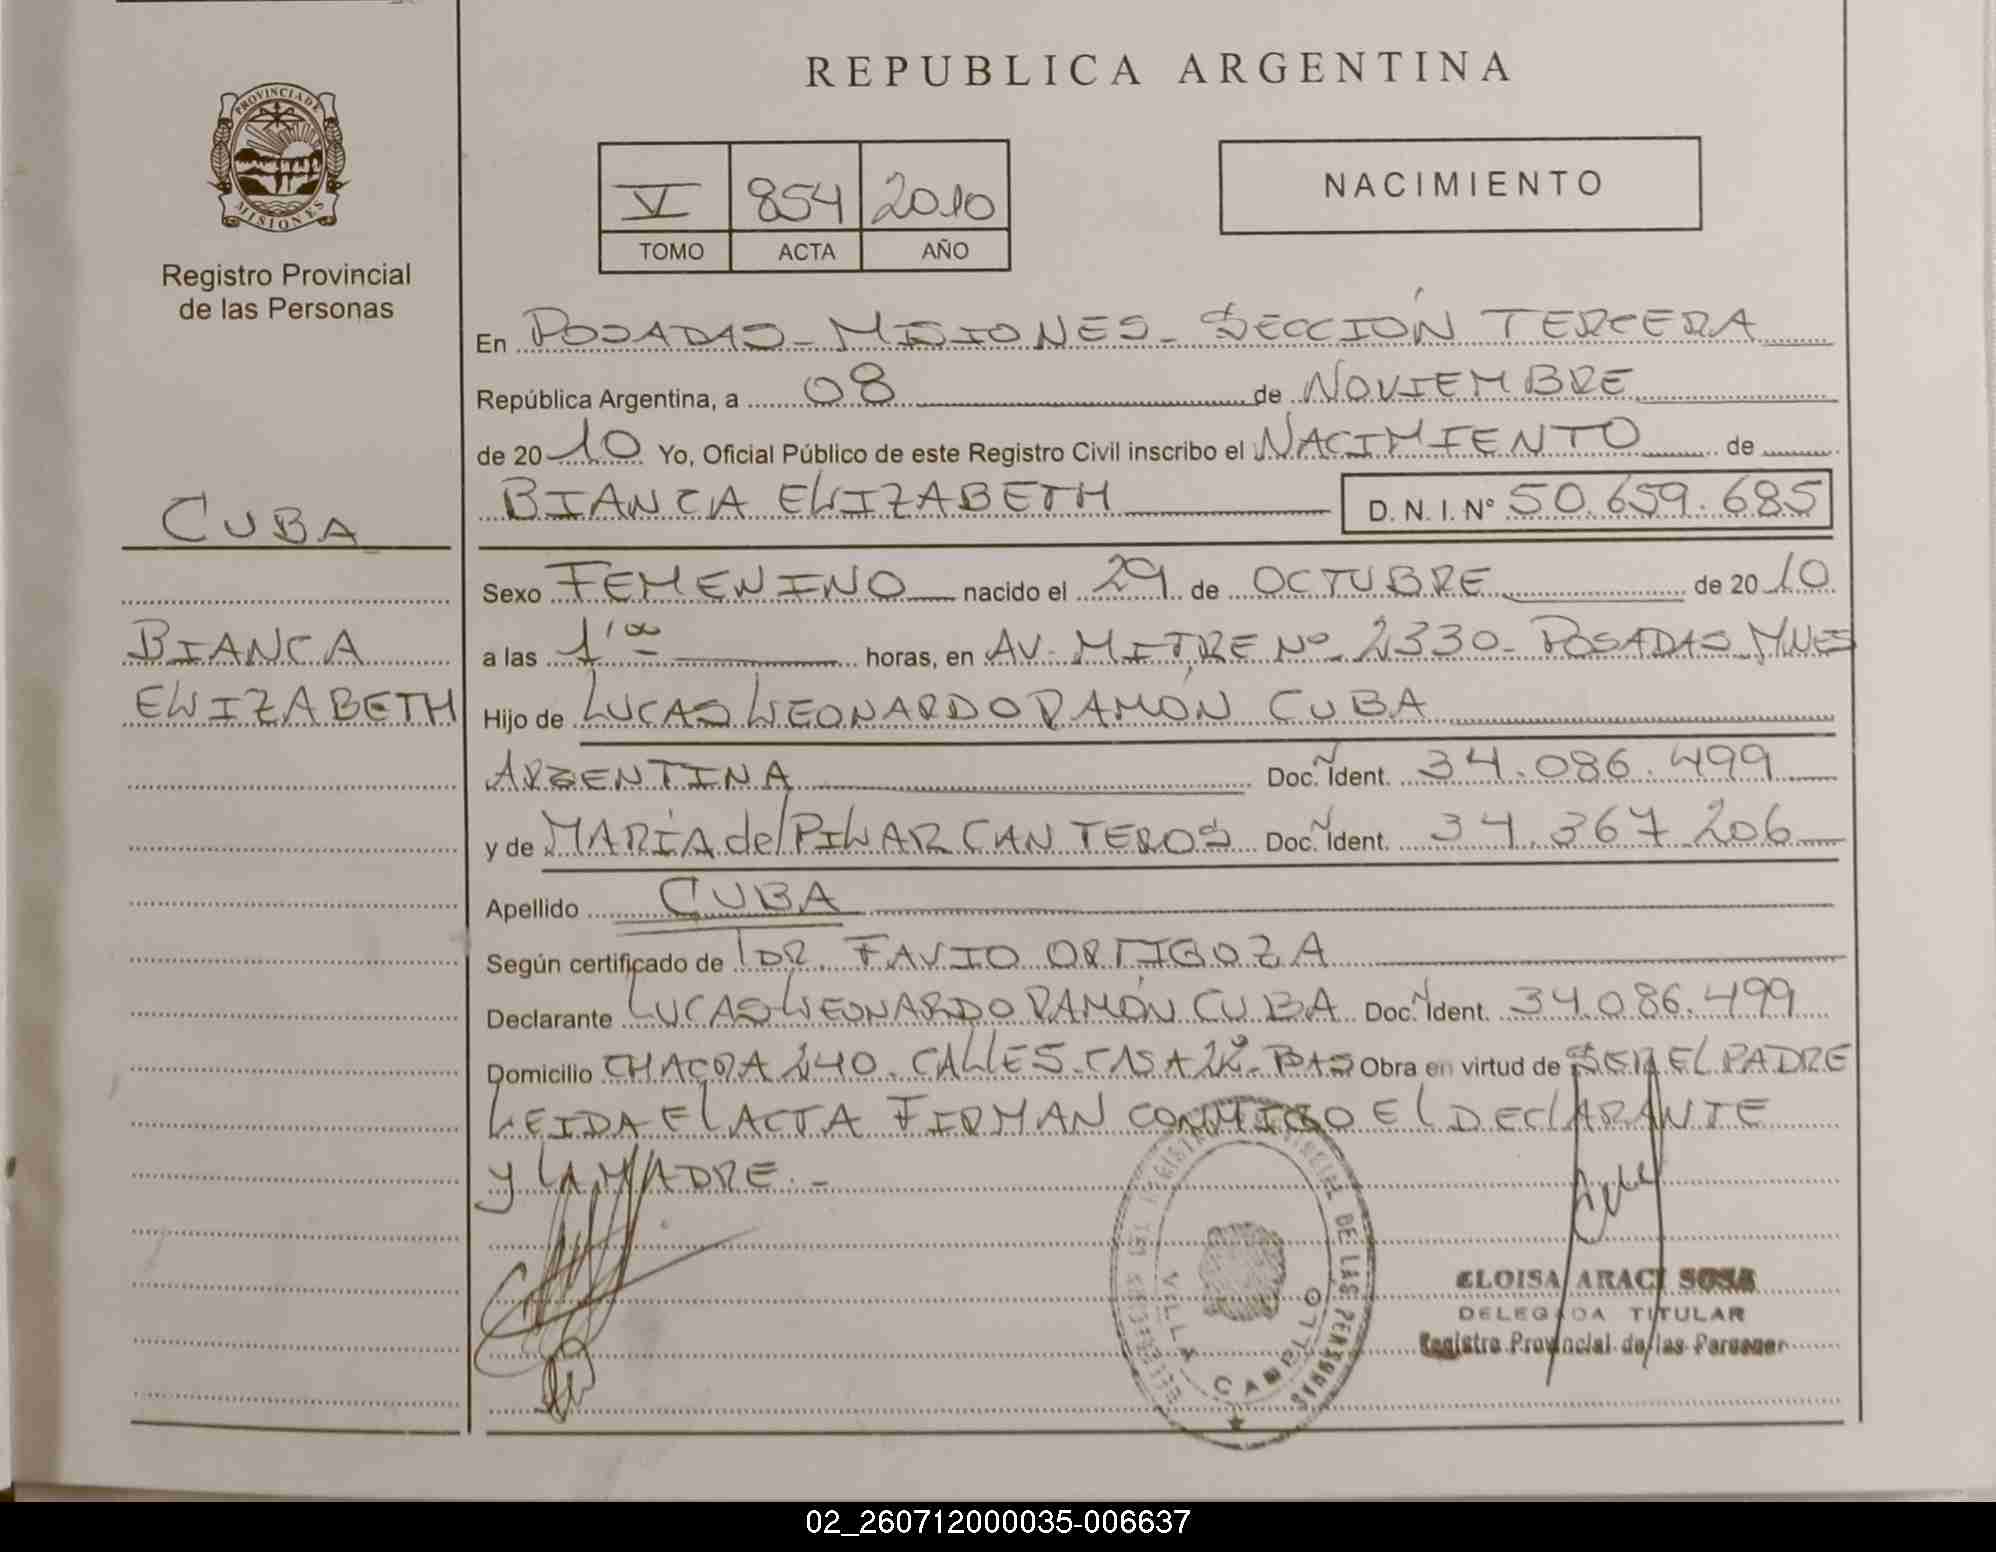 REPUBLICA ARGENTINA
PROVINCIA DE
MISIONES
Registro Provincial
de las Personas
V 854 2010
TOMO ACTA AÑO
NACIMIENTO
En POSADAS - MISIONES - SECCIÓN TERCERA
República Argentina, a 08 de NOVIEMBRE
de 2010 Yo, Oficial Público de este Registro Civil inscribo el NACIMIENTO de
BIANCA ELIZABETH D. N. I. N° 50.659.685
CUBA
BIANCA
ELIZABETH
Sexo FEMENINO nacido el 29 de OCTUBRE de 2010
a las 1'00 horas, en AV. MITRE Nº 2330 - POSADAS MNES
Hijo de LUCAS LEONARDO RAMÓN CUBA
ARGENTINA Doc. Ident. 34.086.499
y de MARÍA del PILAR CANTEROS Doc. Ident. 34.367.206
Apellido CUBA
Según certificado de DR. FAVIO ORTIGOZA
Declarante LUCAS LEONARDO RAMÓN CUBA Doc. Ident. 34.086.499
Domicilio CHACRA 240. CALLE S. CASA Obra en virtud de SER EL PADRE
LEIDA EL ACTA FIRMAN CONMIGO EL DECLARANTE
Y LA MADRE. -
DE LAS PERSONAS
VILLA CABELLO
ELOISA ARACI SOSA
DELEGADA TITULAR
Registro Provincial de las Personas
02_260712000035-006637